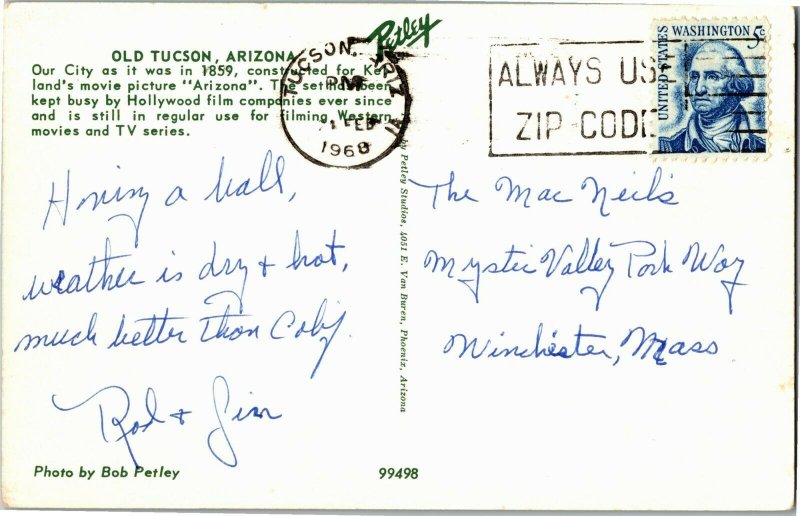 OLD TUCSON, ARIZONA
Our City as it was in 1859, constructed for
land's movie picture "Arizona". The set has been
kept busy by Hollywood film companies ever since
and is still in regular use for filming Western
movies and TV series.
Petley
TUCSON, ARIZ
PM
FEB
1968
ALWAYS US
ZIP CODE
UNITED STATES
WASHINGTON 5c
Having a ball,
weather is dry & hot,
much better than Calif.
Rod & Jim
by Petley Studios, 4051 E. Van Buren, Phoenix, Arizona
The Mac Neil's
Mystic Valley Park Way
Winchester, Mass
Photo by Bob Petley
99498